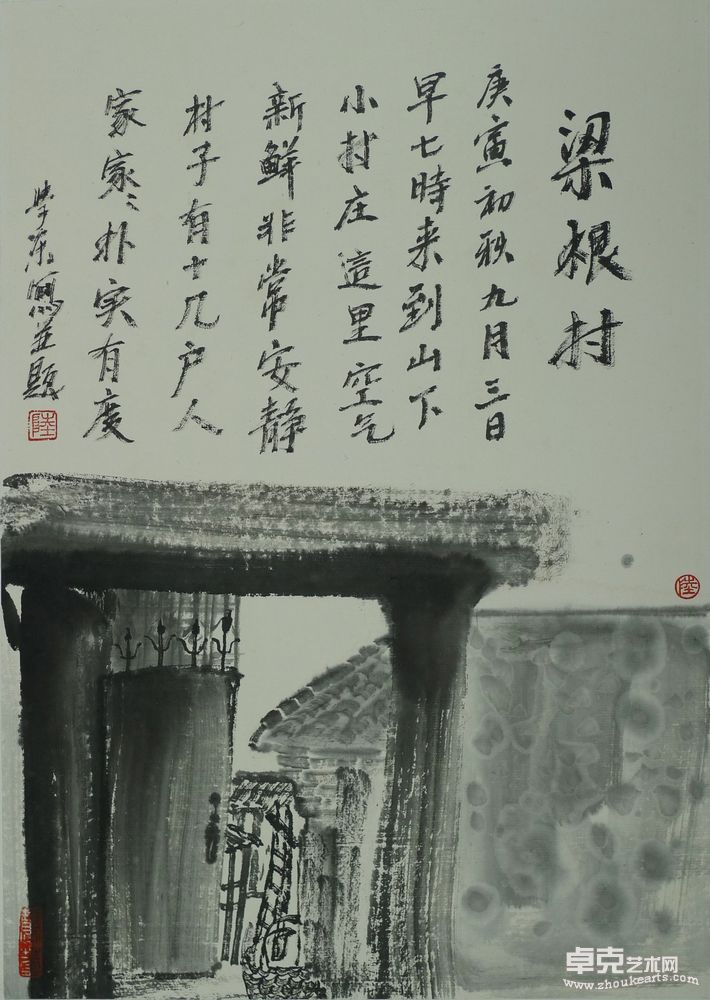 梁根村
庚寅初秋九月三日
早七時来到山下
小村庄這里空气
新鮮非常安静
村子有十几户人
家家々朴实有度
学东寫並题
陸
陸
卓克艺术网
www.zhoukearts.com